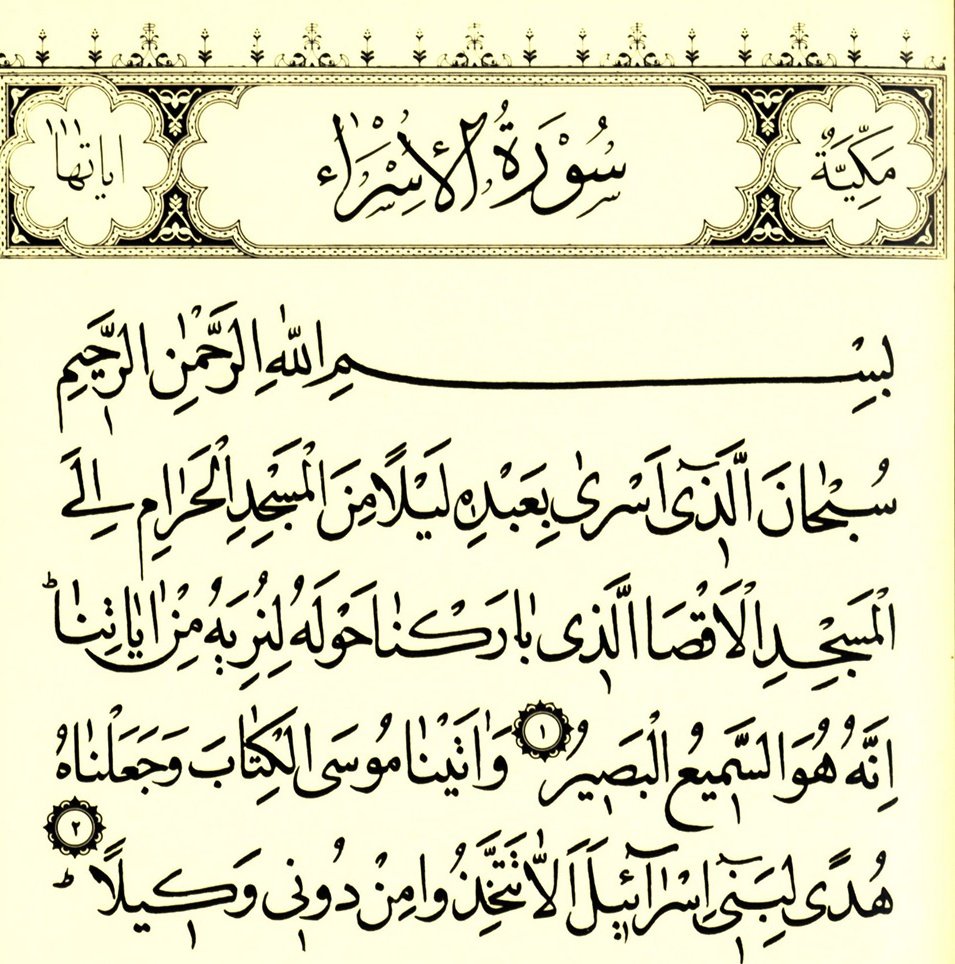 مَكِّيَّةٌ
سُورَةُ الْاِسْرَاء
اياتها ١١١
بِسْمِ اللّٰهِ الرَّحْمٰنِ الرَّحِيمِ
سُبْحَانَ الَّذ۪ٓى اَسْرٰى بِعَبْدِه۪ لَيْلًا مِنَ الْمَسْجِدِ الْحَرَامِ اِلَى
الْمَسْجِدِ الْاَقْصَا الَّذ۪ى بَارَكْنَا حَوْلَهُ لِنُرِيَهُ مِنْ اٰيَاتِنَاۜ
اِنَّهُ هُوَ السَّم۪يعُ الْبَص۪يرُ ١ وَاٰتَيْنَا مُوسَى الْكِتَابَ وَجَعَلْنَاهُ
هُدًى لِبَن۪ٓى اِسْرَٓائ۪لَ اَلَّا تَتَّخِذُوا مِنْ دُون۪ى وَك۪يلًاۜ ٢